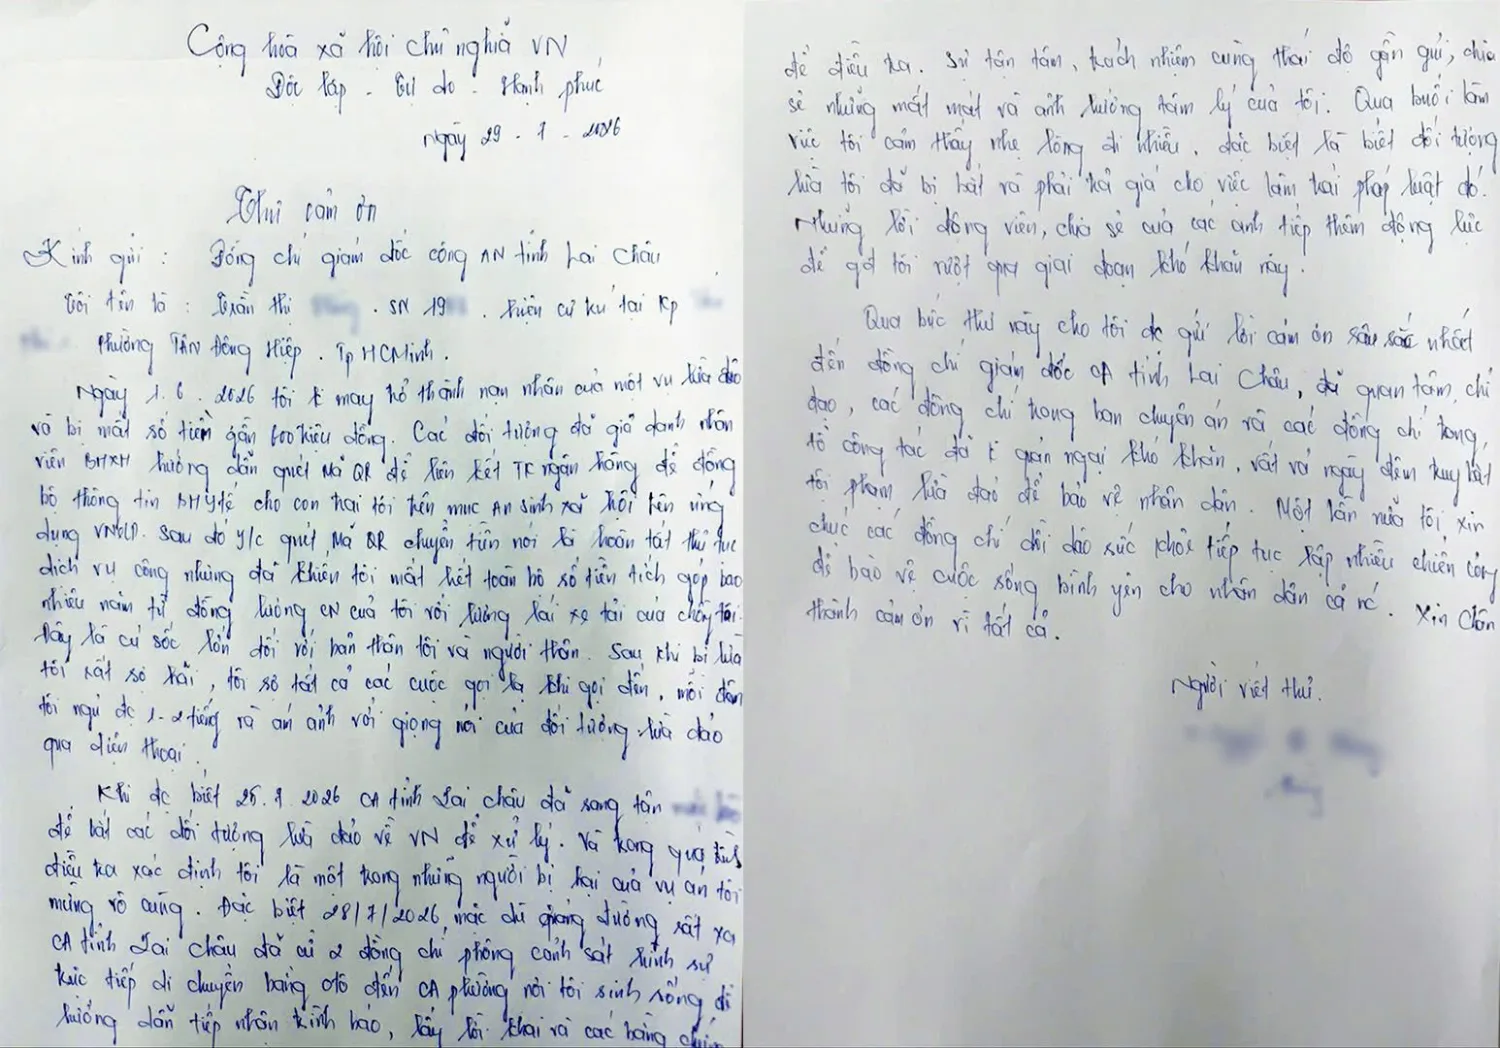 Cộng hoà xã hội chủ nghĩa VN
Độc lập - Tự do - Hạnh phúc
Ngày 29 - 7 - 2026
Thư cảm ơn
Kính gửi : Đồng chí giám đốc công AN tỉnh Lai Châu
Tôi tên là : Trần thị . SN 19 . hiện cư trú tại Kp
Phường TÂN Đông Hiệp . Tp HCMinh.
Ngày 1. 6 . 2026 tôi k may trở thành nạn nhân của một vụ lừa đảo
và bị mất số tiền gần 600 triệu đồng. Các đối tượng đã giả danh nhân
viên BHXH hướng dẫn quét Mã QR để liên kết TK ngân hàng để đồng
bộ thông tin BHYtế cho con trai tôi trên mục AN sinh xã hội trên ứng
dụng VNeID. Sau đó y/c quét Mã QR chuyển tiền nói là hoàn tất thủ tục
dịch vụ công nhưng đã khiến tôi mất hết toàn bộ số tiền tích góp bao
nhiêu năm từ đồng lương CN của tôi với lương lái xe tải của chồng tôi.
Đây là cú sốc lớn đối với bản thân tôi và người thân. Sau khi bị lừa
tôi rất sợ hãi, tôi sợ tất cả các cuộc gọi lạ khi gọi đến, mỗi đêm
tôi ngủ đc 1-2 tiếng và ám ảnh với giọng nói của đối tượng lừa đảo
qua điện thoại.
Khi đc biết 25.7.2026 CA tỉnh Lai châu đã sang tận
để bắt các đối tượng lừa đảo về VN để xử lý. Và trong quá trình
điều tra xác định tôi là một trong những người bị hại của vụ án tôi
mừng vô cùng. Đặc biệt 28/7/2026, mặc dù quãng đường rất xa
CA tỉnh Lai châu đã cử 2 đồng chí phòng cảnh sát hình sự
trực tiếp di chuyển bằng ôtô đến CA phường nơi tôi sinh sống để
hướng dẫn tiếp nhận trình báo, lấy lời khai và các bằng chứng
để điều tra. Sự tận tâm, trách nhiệm cùng thái độ gần gũi, chia
sẻ những mất mát và ảnh hưởng tâm lý của tôi. Qua buổi làm
việc tôi cảm thấy nhẹ lòng đi nhiều, đặc biệt là biết đối tượng
lừa tôi đã bị bắt và phải trả giá cho việc làm trái pháp luật đó.
Những lời động viên, chia sẻ của các anh tiếp thêm động lực
để gđ tôi vượt qua giai đoạn khó khăn này.
Qua bức thư này cho tôi đc gửi lời cảm ơn sâu sắc nhất
đến đồng chí giám đốc CA tỉnh Lai Châu, đã quan tâm, chỉ
đạo, các đồng chí trong ban chuyên án và các đồng chí trong,
tổ công tác đã k quản ngại khó khăn, vất vả ngày đêm truy bắt
tội phạm lừa đảo để bảo vệ nhân dân. Một lần nữa tôi xin
chúc các đồng chí dồi dào sức khỏe tiếp tục lập nhiều chiến công
để bảo vệ cuộc sống bình yên cho nhân dân cả nc. Xin Chân
thành cảm ơn vì tất cả.
Người viết thư.